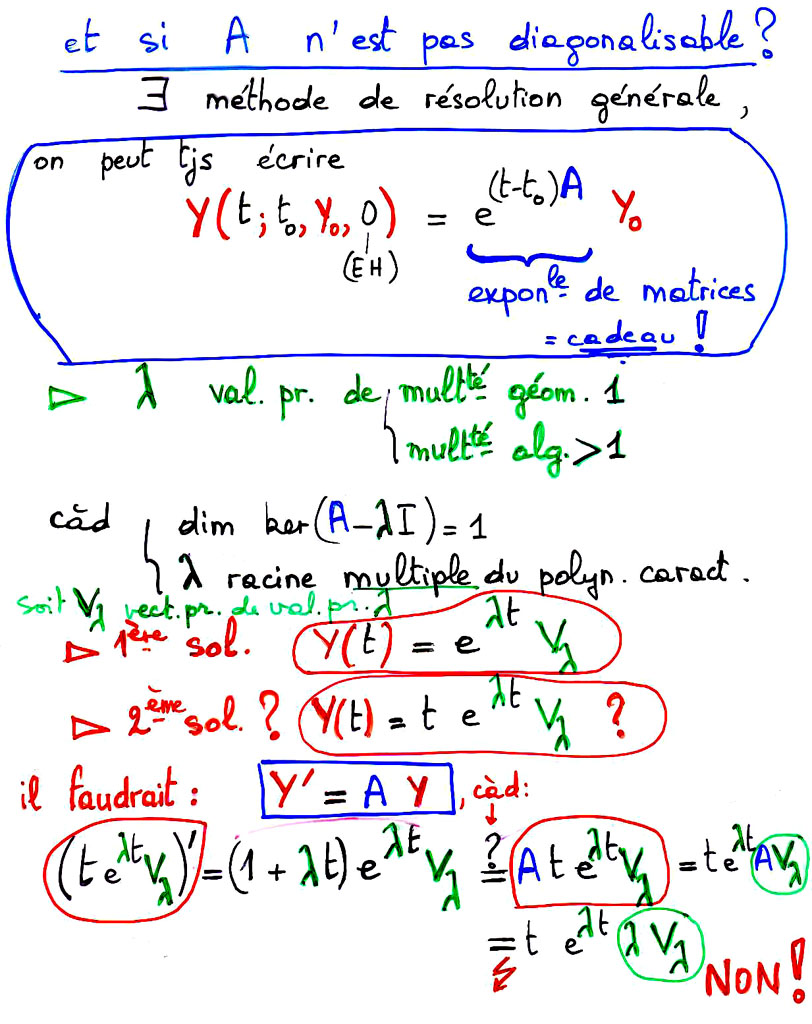 et si A n'est pas diagonalisable?
∃ méthode de résolution générale,
on peut tjs écrire
Y(t; t₀, Y₀, 0) = e^{(t-t₀)A} Y₀
(EH)
expon^{le} de matrices
= cadeau !
▷ λ val. pr. de { mult^{té} géom. 1
mult^{té} alg. > 1
càd { dim ker(A-λI) = 1
λ racine multiple du polyn. caract.
soit V_λ vect.pr. de val.pr. λ
▷ 1^{ère} sol. Y(t) = e^{λt} V_λ
▷ 2^{ème} sol. ? Y(t) = t e^{λt} V_λ ?
il faudrait : Y' = A Y, càd:
(t e^{λt} V_λ)' = (1 + λt) e^{λt} V_λ ?= A t e^{λt} V_λ = t e^{λt} A V_λ
= t e^{λt} λ V_λ
NON!